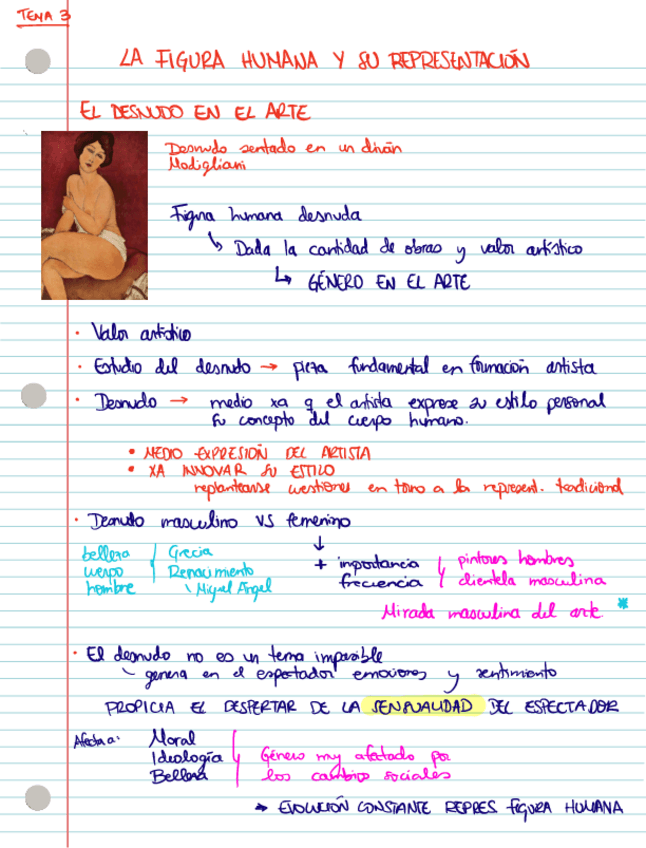 TEMA 3
LA FIGURA HUMANA Y SU REPRESENTACIÓN
EL DESNUDO EN EL ARTE
Desnudo sentado en un diván
Modigliani
Figura humana desnuda
↳ Dada la cantidad de obras y valor artístico
↳ GÉNERO EN EL ARTE
· Valor artístico
· Estudio del desnudo → pieza fundamental en formación artista
· Desnudo → medio xa q el artista exprese su estilo personal
su concepto del cuerpo humano.
• MEDIO EXPRESIÓN DEL ARTISTA
• XA INNOVAR SU ESTILO
replantearse cuestiones en torno a la represent. tradicional
· Desnudo masculino VS femenino
belleza cuerpo hombre
Grecia
Renacimiento
\ Miguel Ángel
↓
+ importancia
frecuencia
pintores hombres
clientela masculina
Mirada masculina del arte *
· El desnudo no es un tema impasible
genera en el espectador emociones y sentimiento
PROPICIA EL DESPERTAR DE LA SENSUALIDAD DEL ESPECTADOR
Afecta a: Moral
Ideología
Belleza
Género muy afectado por
los cambios sociales
→ EVOLUCIÓN CONSTANTE REPRES. FIGURA HUMANA